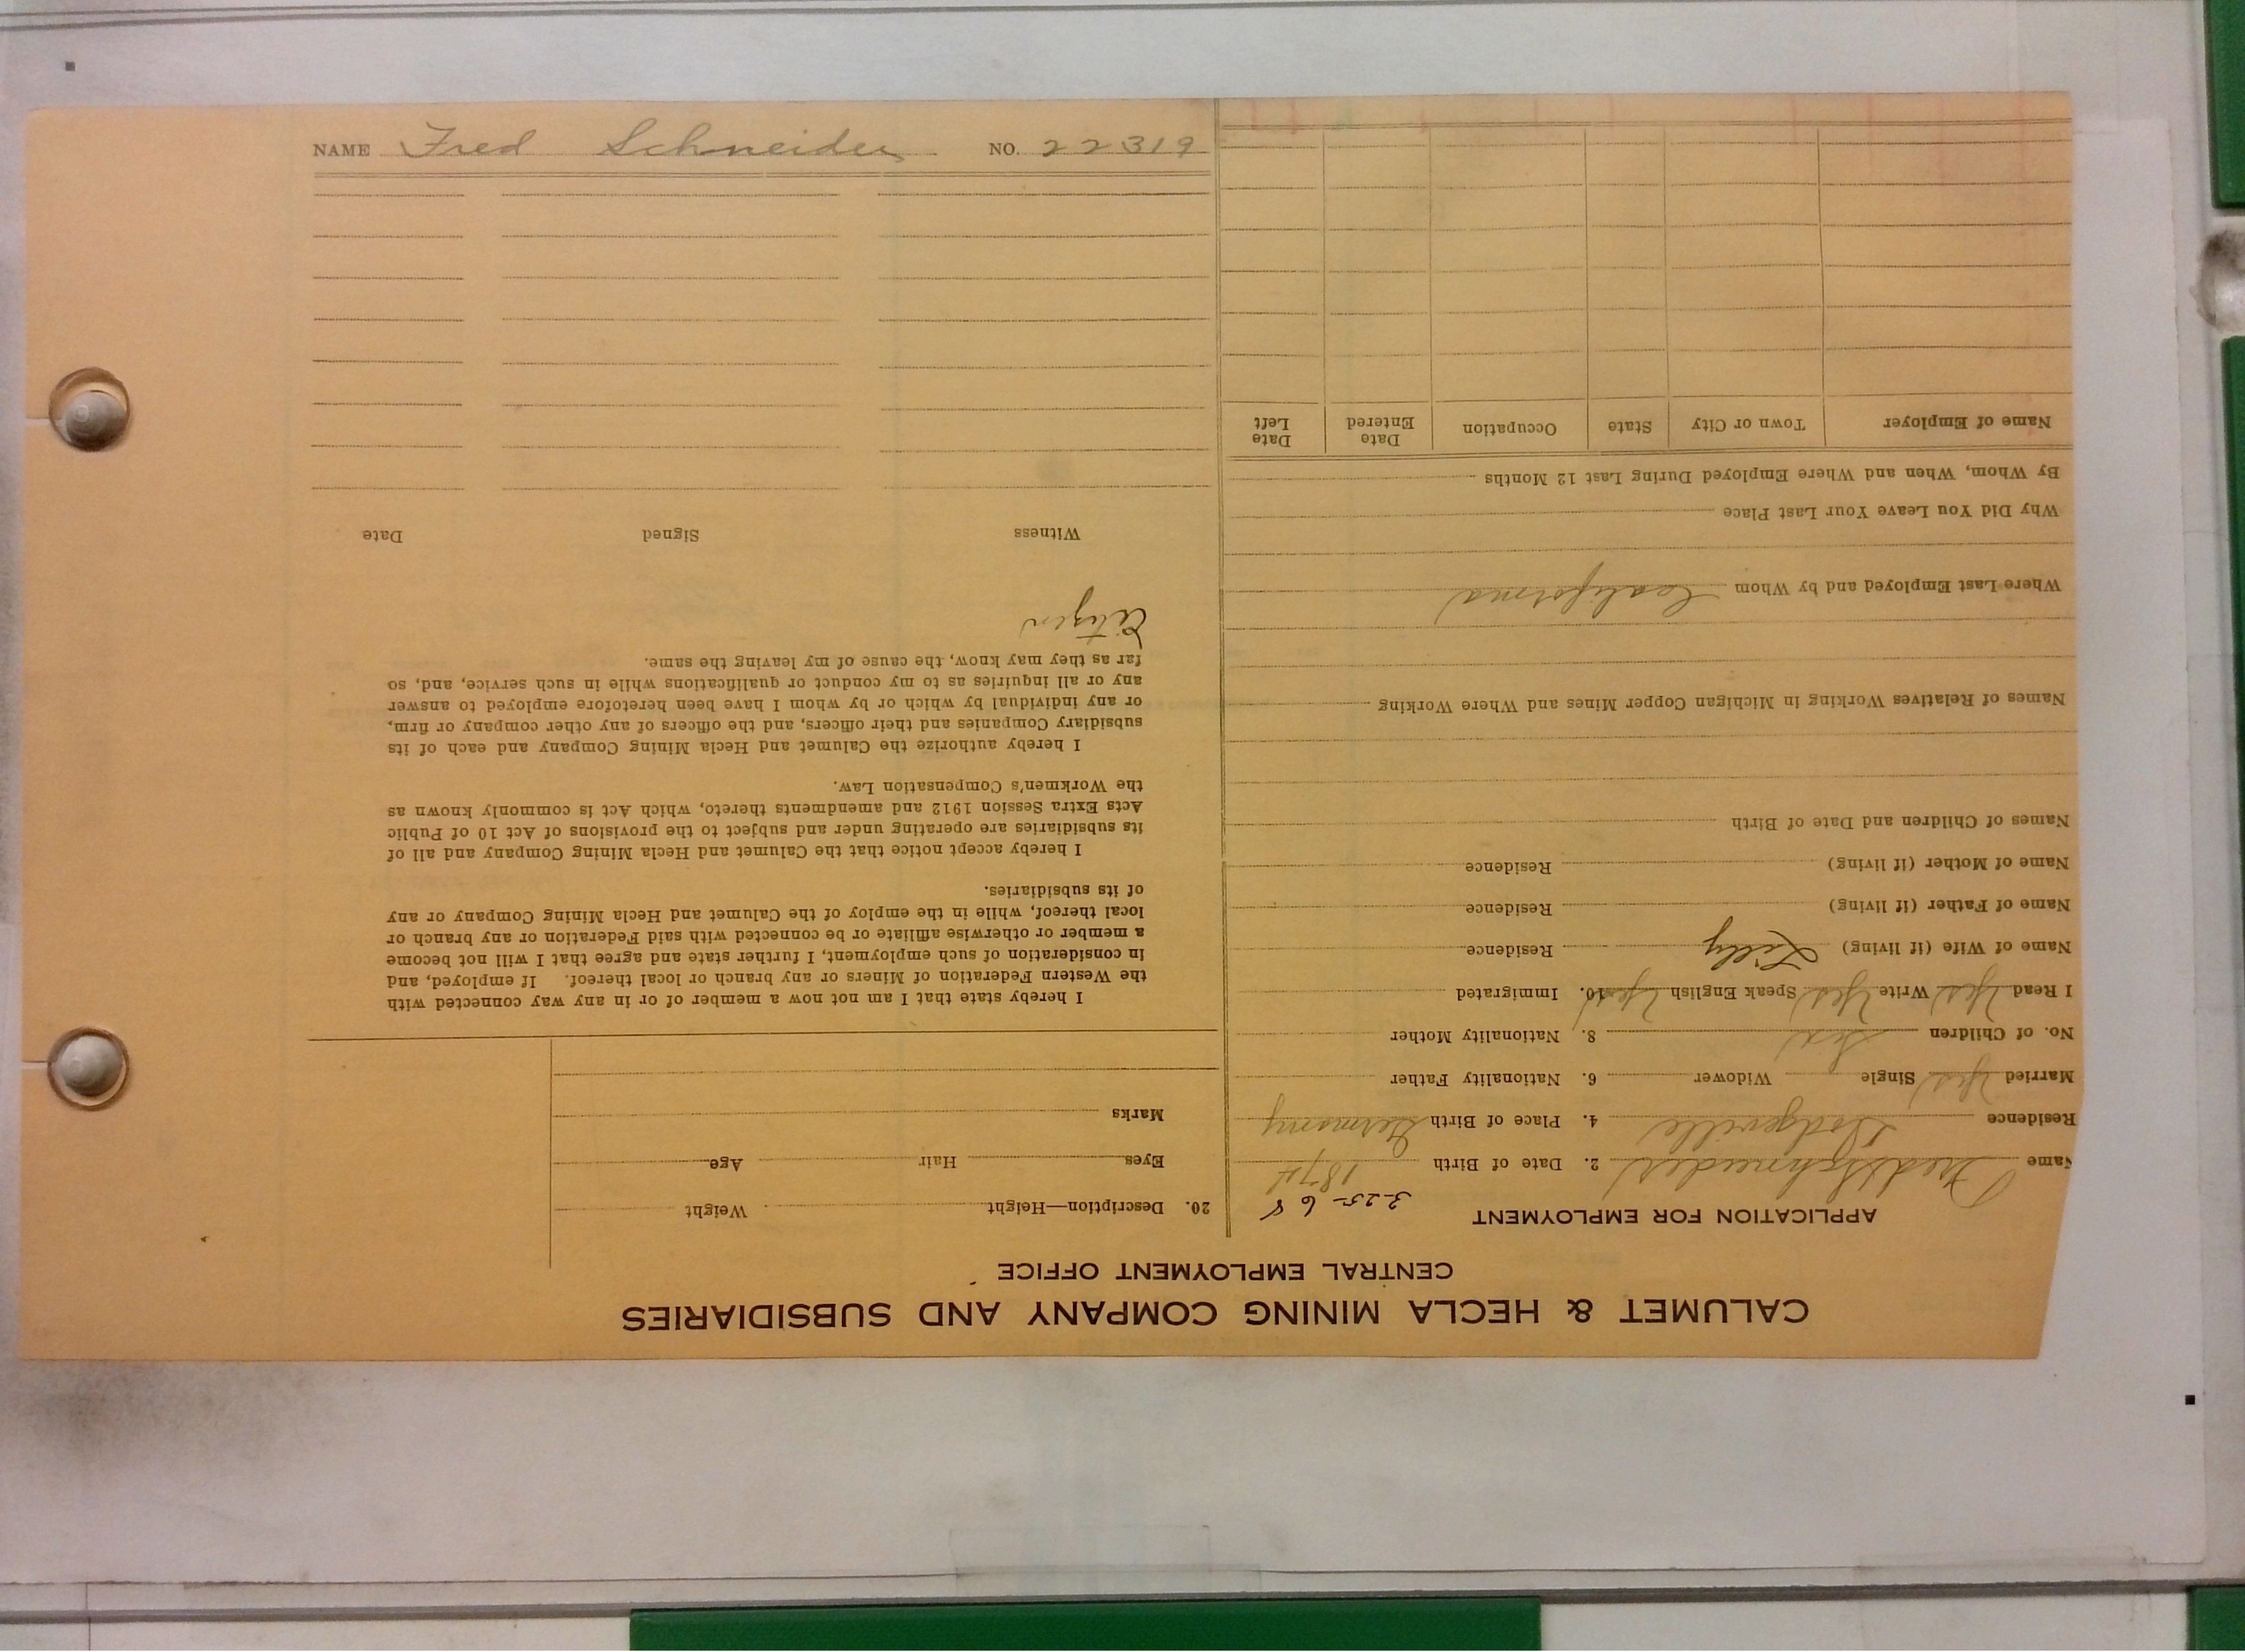 CALUMET & HECLA MINING COMPANY AND SUBSIDIARIES
CENTRAL EMPLOYMENT OFFICE
APPLICATION FOR EMPLOYMENT
3-25-68
Name Fred Schneider 2. Date of Birth 1871
Residence Dodgeville 4. Place of Birth Germany
Married Yes Single Widower 6. Nationality Father
No. of Children Six 8. Nationality Mother
I Read Yes Write Yes Speak English Yes 10. Immigrated
Name of Wife (if living) Lilly Residence
Name of Father (if living) Residence
Name of Mother (if living) Residence
Names of Children and Date of Birth
Names of Relatives Working in Michigan Copper Mines and Where Working
Where Last Employed and by Whom Coaliforma
Why Did You Leave Your Last Place
By Whom, When and Where Employed During Last 12 Months
Name of Employer Town or City State Occupation Date Entered Date Left
20. Description—Height Weight
Eyes Hair Age
Marks
I hereby state that I am not now a member of or in any way connected with
the Western Federation of Miners or any branch or local thereof. If employed, and
in consideration of such employment, I further state and agree that I will not become
a member or otherwise affiliate or be connected with said Federation or any branch or
local thereof, while in the employ of the Calumet and Hecla Mining Company or any
of its subsidiaries.
I hereby accept notice that the Calumet and Hecla Mining Company and all of
its subsidiaries are operating under and subject to the provisions of Act 10 of Public
Acts Extra Session 1912 and amendments thereto, which Act is commonly known as
the Workmen's Compensation Law.
I hereby authorize the Calumet and Hecla Mining Company and each of its
subsidiary Companies and their officers, and the officers of any other company or firm,
or any individual by which or by whom I have been heretofore employed to answer
any or all inquiries as to my conduct or qualifications while in such service, and, so
far as they may know, the cause of my leaving the same.
Citizen
Witness Signed Date
NAME Fred Schneider NO. 22319